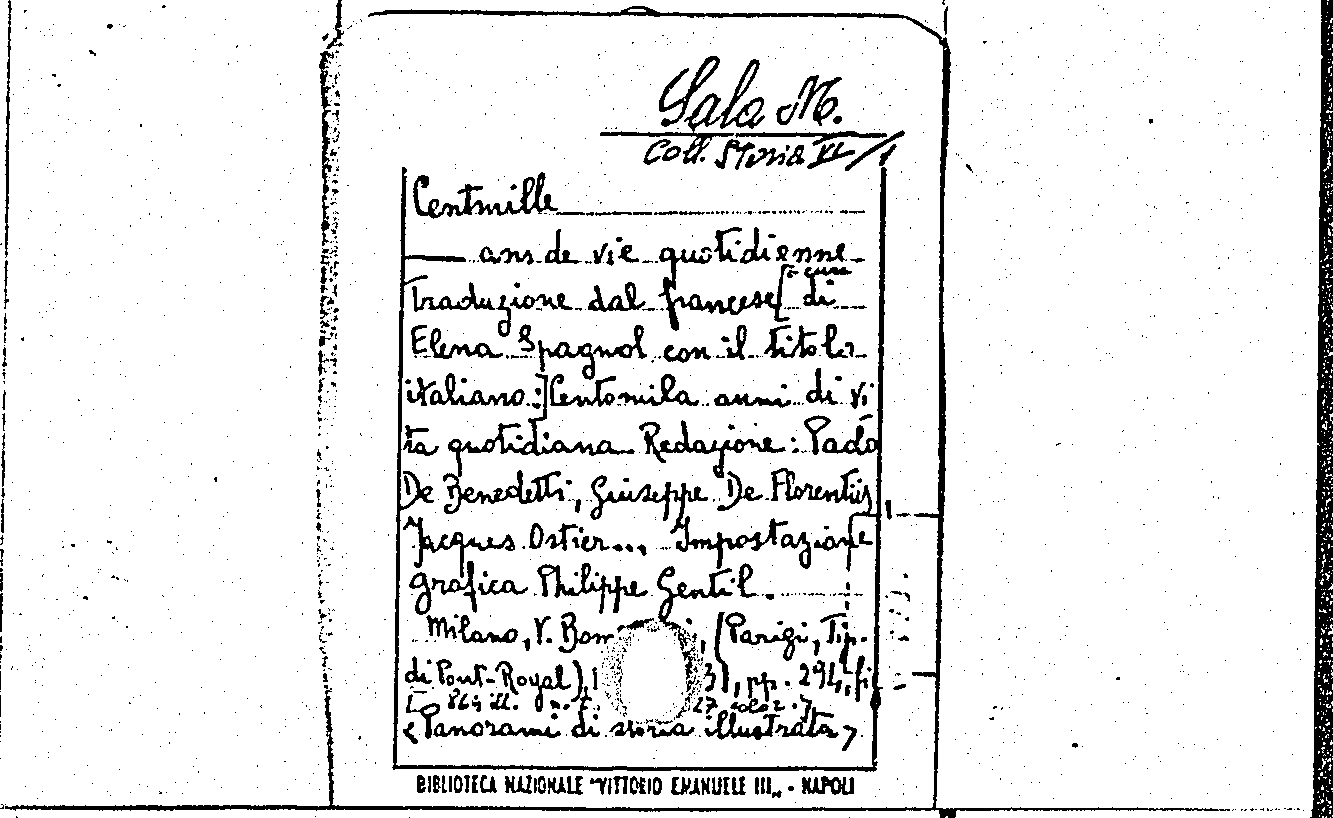 Sala M.
Coll. Storia VI/1
Centmille
ans de vie quotidienne
Traduzione dal francese [a cura di
Elena Spagnol con il titolo
italiano:] Centomila anni di vi
ta quotidiana Redazione: Paolo
De Benedetti, Giuseppe De Florentiis,
Jacques Ostier... Impostazione
grafica Philippe Gentil.
Milano, V. , (Parigi, Tip.
di Pont-Royal), 3), pp. 294, fi
ill. n. t. 27 color.
<Panorami di storia illustrata>
BIBLIOTECA NAZIONALE "VITTORIO EMANUELE III„ - NAPOLI